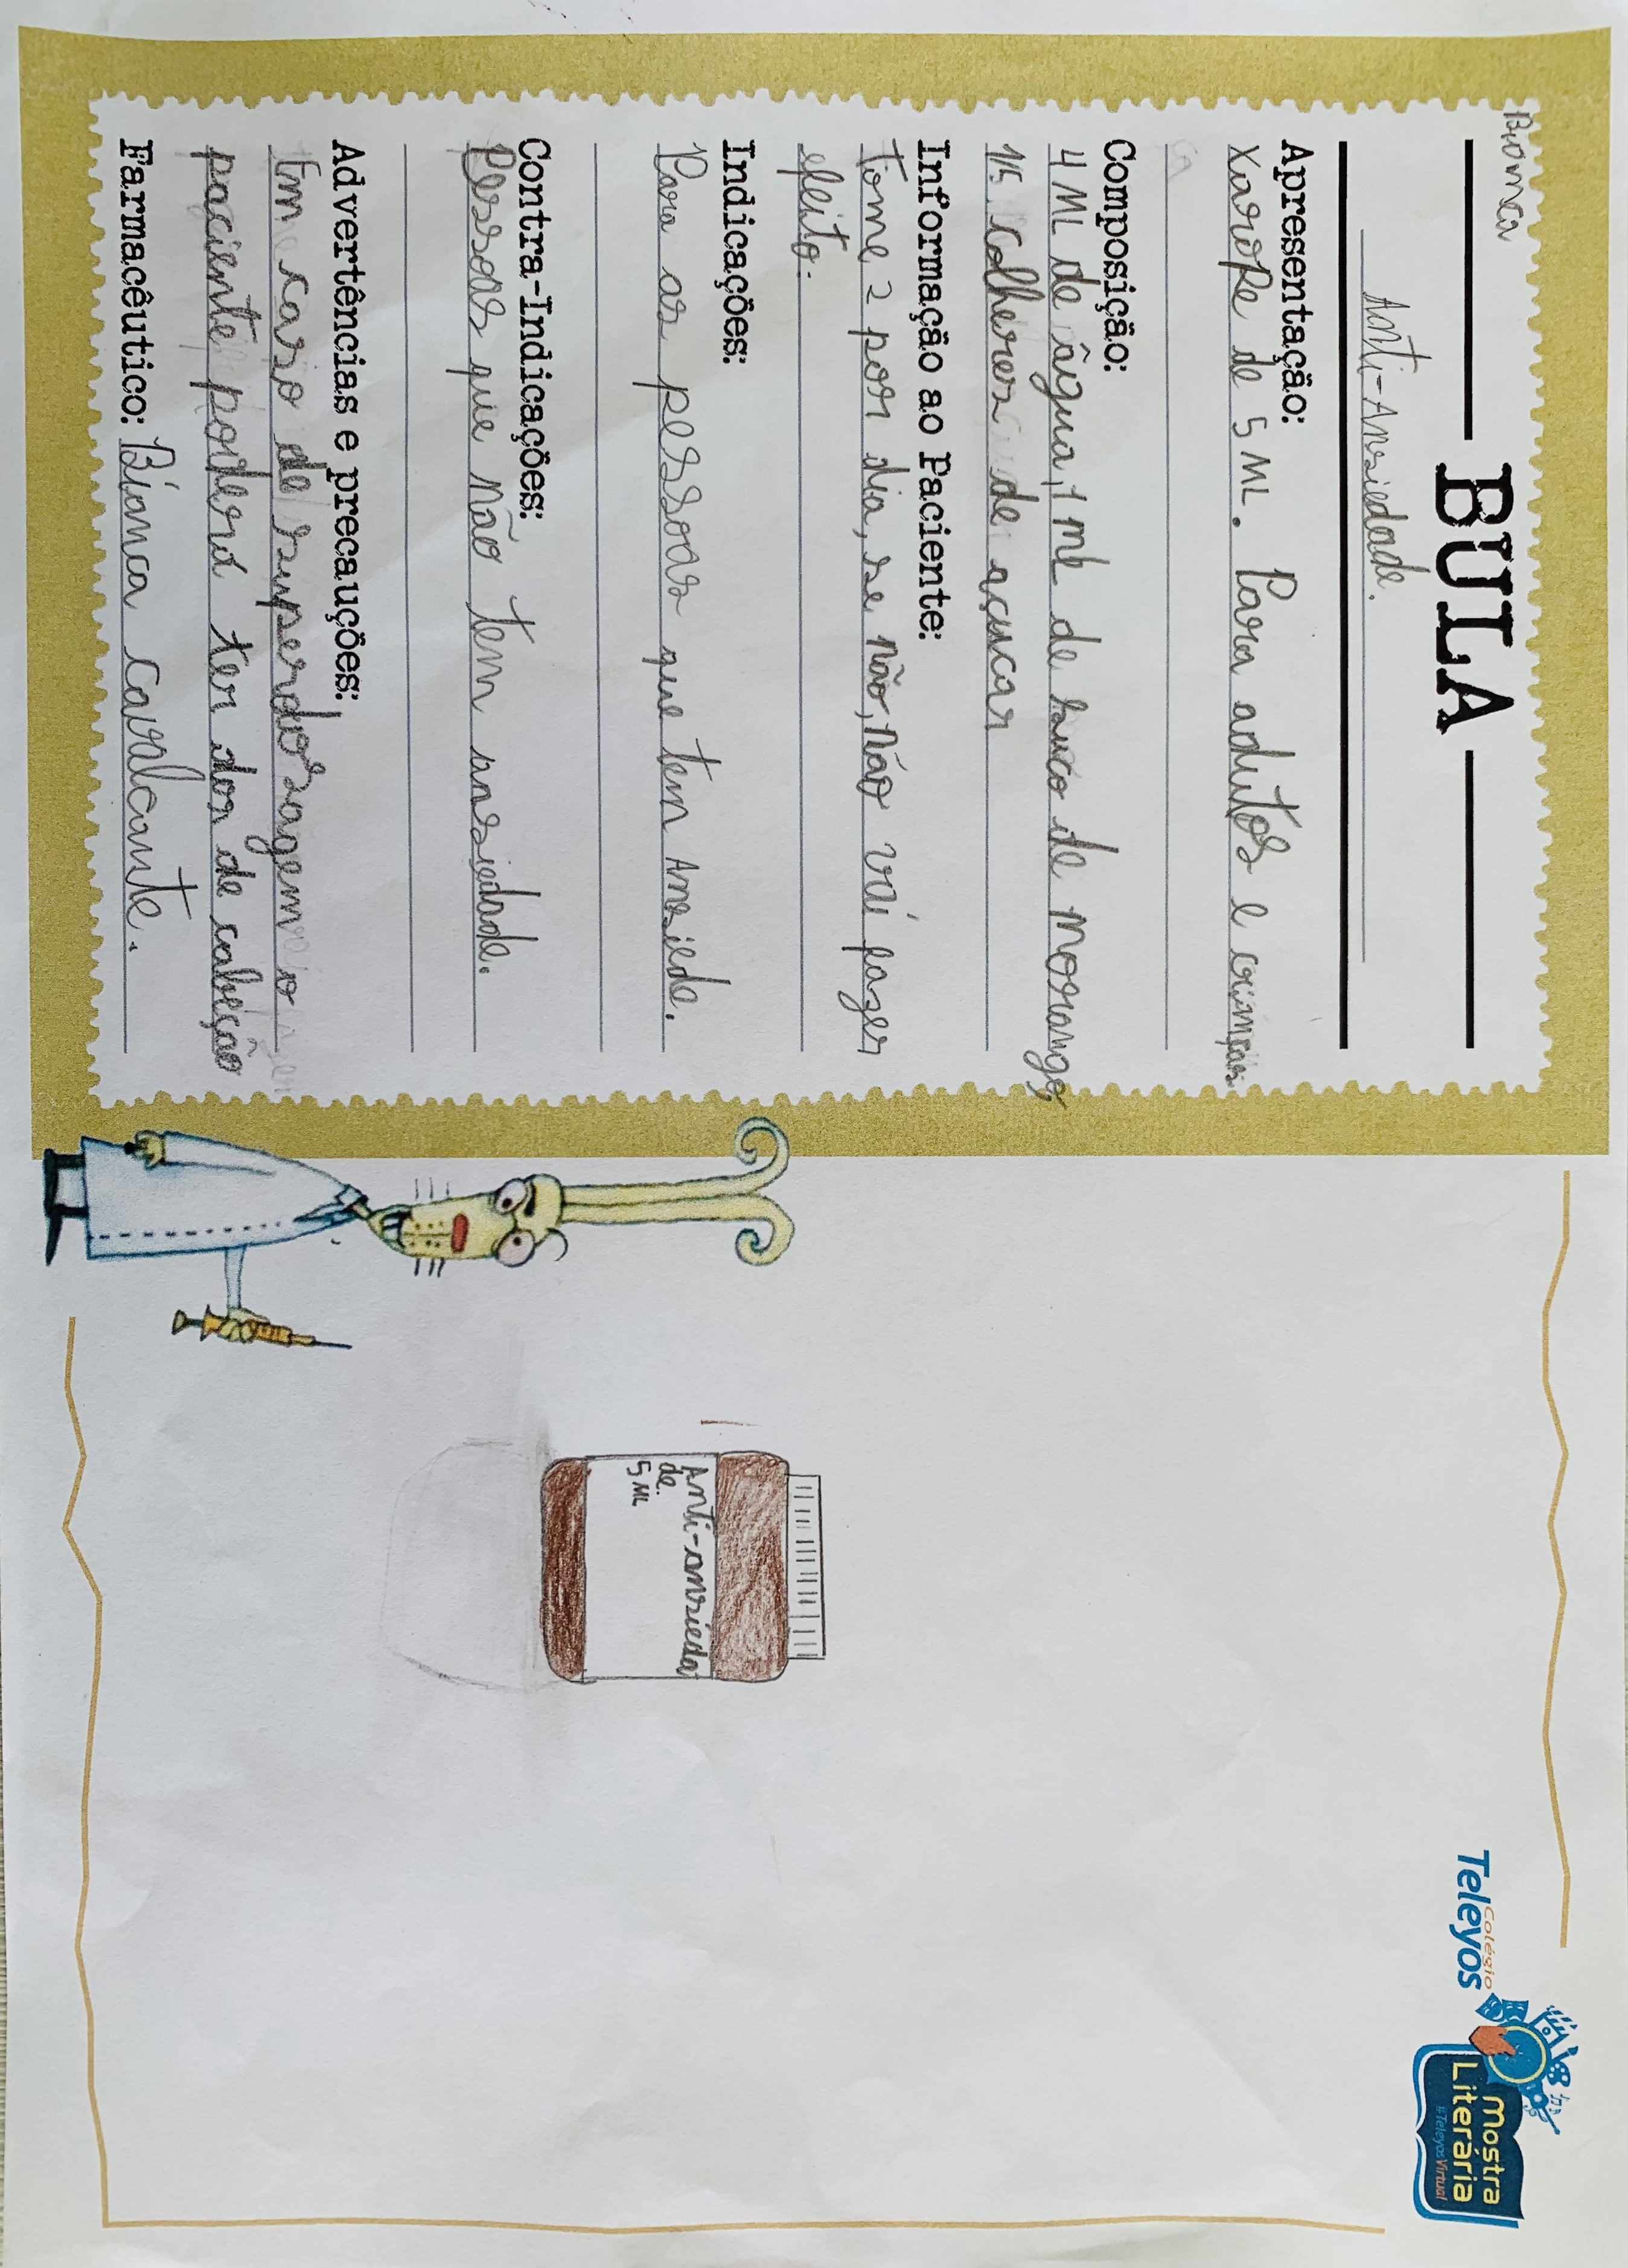 Bianca
BULA
Anti-Ansiedade.
Apresentação:
XaroPe de 5 ML. Para adultos e crianças.
Composição:
4 ML de água, 1 mL de suco de morango,
15 colheres de açucar
Informação ao Paciente:
tome 2 por dia, se não, não vai fazer
efeito.
Indicações:
Para as pessoas que tem Ansiede.
Contra-Indicações:
Pessoas que não tem ansiedade.
Advertências e precauções:
Em caso de superdosagem o
paciente poderá ter dor de cabeção
Farmacêutico: Bianca cavalcante.
Anti-ansieda
de.
5 ML
Colégio
Teleyos
mostra
Literária
#TeleyosVirtual